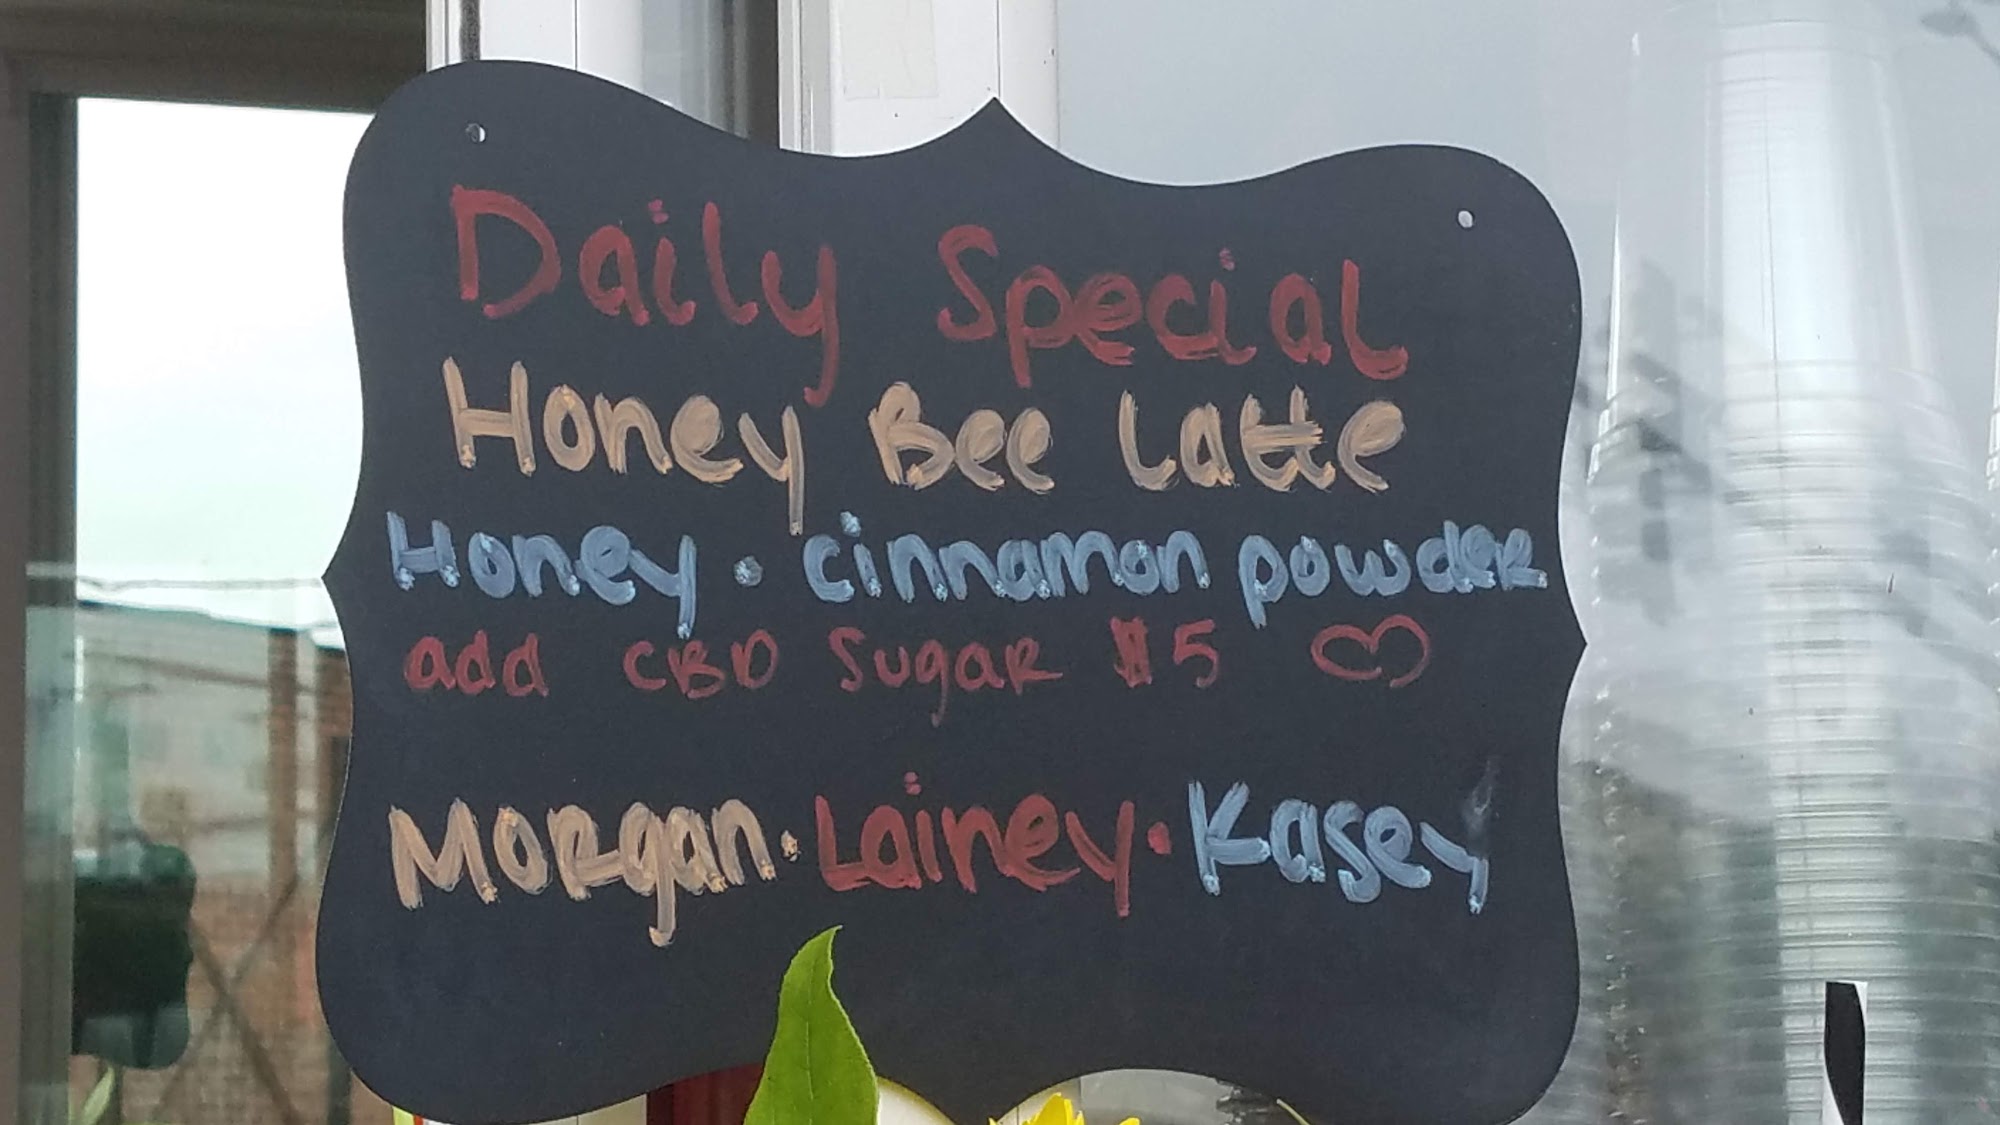 Daily Special
Honey Bee Latte
Honey • cinnamon powder
add CBD Sugar $5 ♡
Morgan • Lainey • Kasey